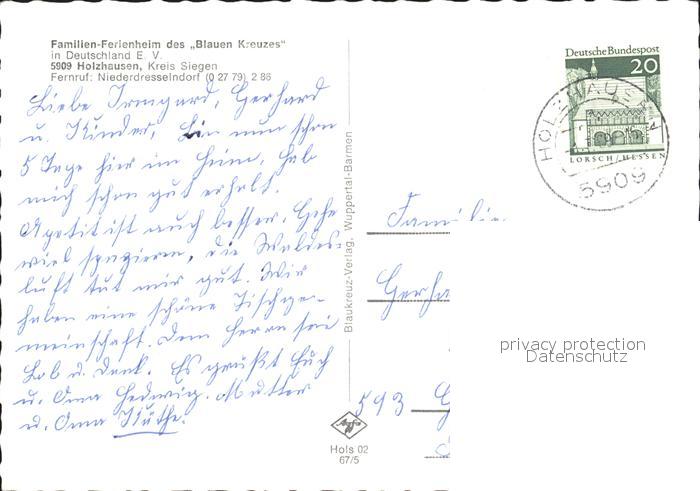 Familien-Ferienheim des „Blauen Kreuzes"
in Deutschland E. V.
5909 Holzhausen, Kreis Siegen
Fernruf: Niederdresselndorf (0 27 79) 2 86
Liebe Irmgard, Gerhard
u. Kinder, bin nun schon
5 Tage hier im Heim, hab
mich schon gut erholt.
Apetit ist auch besser. Gehe
viel spazieren, die Waldes-
luft tut mir gut. Wir
haben eine schöne Tischge-
meinschaft. Dem Herrn sei
Lob u. Dank. Es grüßt Euch
u. Oma Hedwig. Mutter
u. Oma
Blaukreuz-Verlag, Wuppertal-Barmen
Agfa
Hols 02
67/5
Deutsche Bundespost
20
LORSCH/HESSEN
HOLZHAUSEN
5909
Familie
Gerha
593 G
privacy protection
Datenschutz